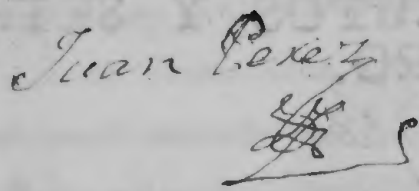 Juan Perez